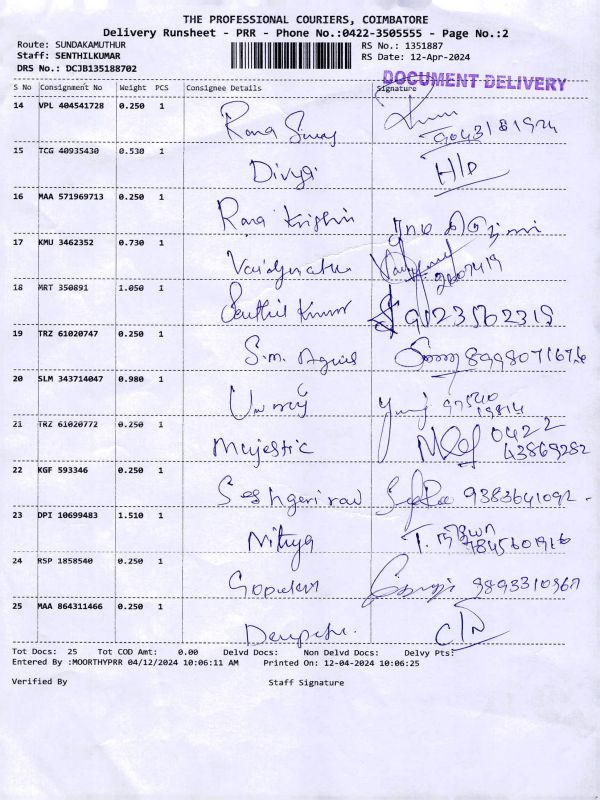 THE PROFESSIONAL COURIERS, COIMBATORE
Delivery Runsheet - PRR - Phone No.:0422-3505555 - Page No.:2
Route: SUNDAKAMUTHUR RS No.: 1351887
Staff: SENTHILKUMAR RS Date: 12-Apr-2024
DRS No.: DCJB135188702
DOCUMENT DELIVERY
S No Consignment No Weight PCS Consignee Details Signature
14 VPL 404541728 0.250 1
9043181924
15 TCG 40935430 0.530 1
Divya
16 MAA 571969713 0.250 1
Rama Krishn
17 KMU 3462352 0.730 1
18 MRT 350891 1.050 1
Senthil Kumar 9123562315
19 TRZ 61020747 0.250 1
S.M. Agnes 8998071676
20 SLM 343714047 0.980 1
21 TRZ 61020772 0.250 1
Majestic 0422
43869282
22 KGF 593346 0.250 1
Seshgerirao 9383641092
23 DPI 10699483 1.510 1
Nithya 9845601916
24 RSP 1858540 0.250 1
9893310967
25 MAA 864311466 0.250 1
Tot Docs: 25 Tot COD Amt: 0.00 Delvd Docs: Non Delvd Docs: Delvy Pts:
Entered By :MOORTHYPRR 04/12/2024 10:06:11 AM Printed On: 12-04-2024 10:06:25
Verified By Staff Signature